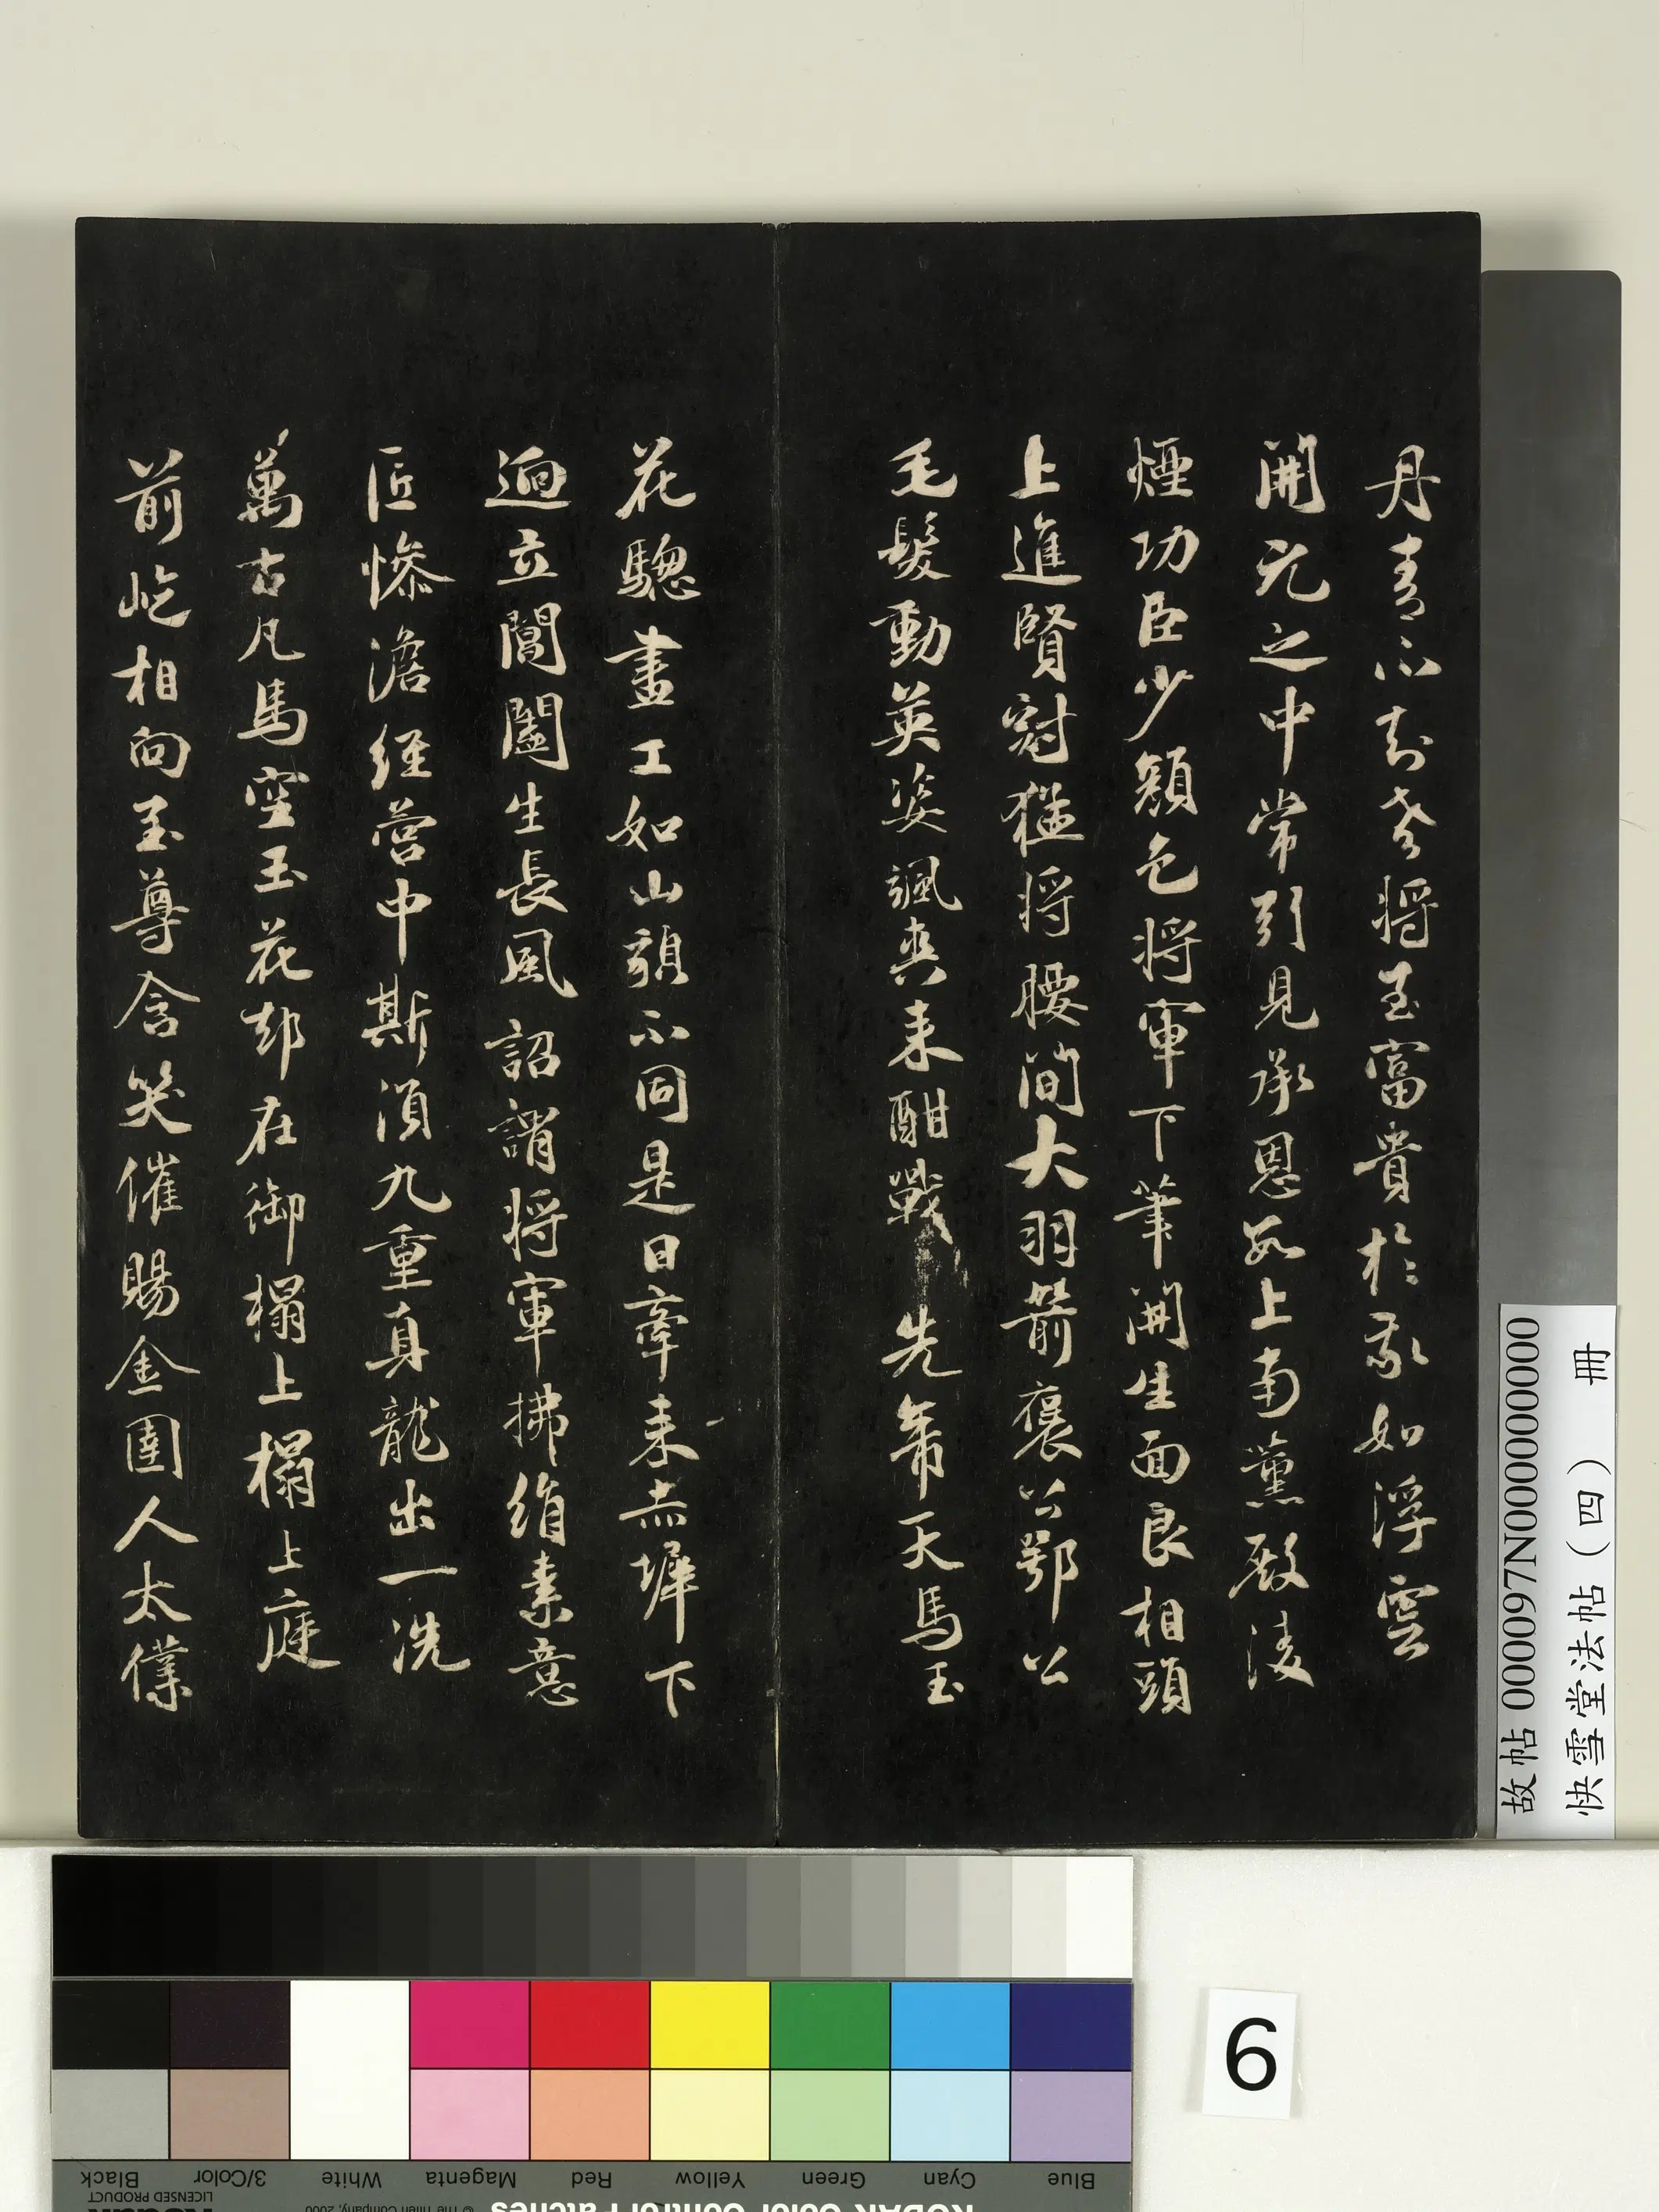 丹青不知老將至富貴於我如浮雲
開元之中常引見承恩數上南薰殿淩
煙功臣少顏色將軍下筆開生面良相頭
上進賢冠猛將腰間大羽箭褒公鄂公
毛髮動英姿颯爽来酣戰先帝天馬玉
花驄畫工如山貌不同是日牽来赤墀下
迥立閶闔生長風詔謂將軍拂絹素意
匠慘澹經營中斯須九重真龍出一洗
萬古凡馬空玉花却在御榻上榻上庭
前屹相向至尊含笑催賜金圉人太僕
故帖 000097N000000000
快雪堂法帖（四） 冊
6
Blue Cyan Green Yellow Red Magenta White 3/Color Black
KODAK Color Control Patches
© The Tiffen Company, 2000
LICENSED PRODUCT